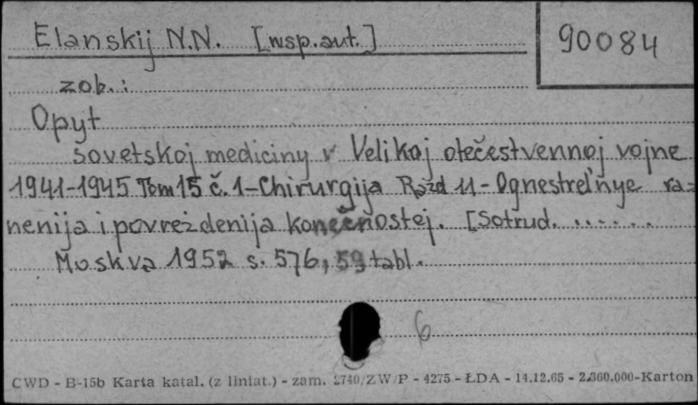 Elanskij N.N. [wsp.aut.]
90084
zob.:
Opyt
sovetskoj mediciny v Velikoj otečestvennoj vojne
1941-1945 Tom 15 č. 1-Chirurgija Razd 11-Ognestrel'nye ra-
nenija i povreždenija konečnostej. [Sotrud. ......
Moskva 1952 s. 576, 59 tabl.
6
CWD - B-15b Karta katal. (z liniat.) - zam. 2740/ZW/P - 4275 - ŁDA - 14.12.65 - 2.360.000-Karton